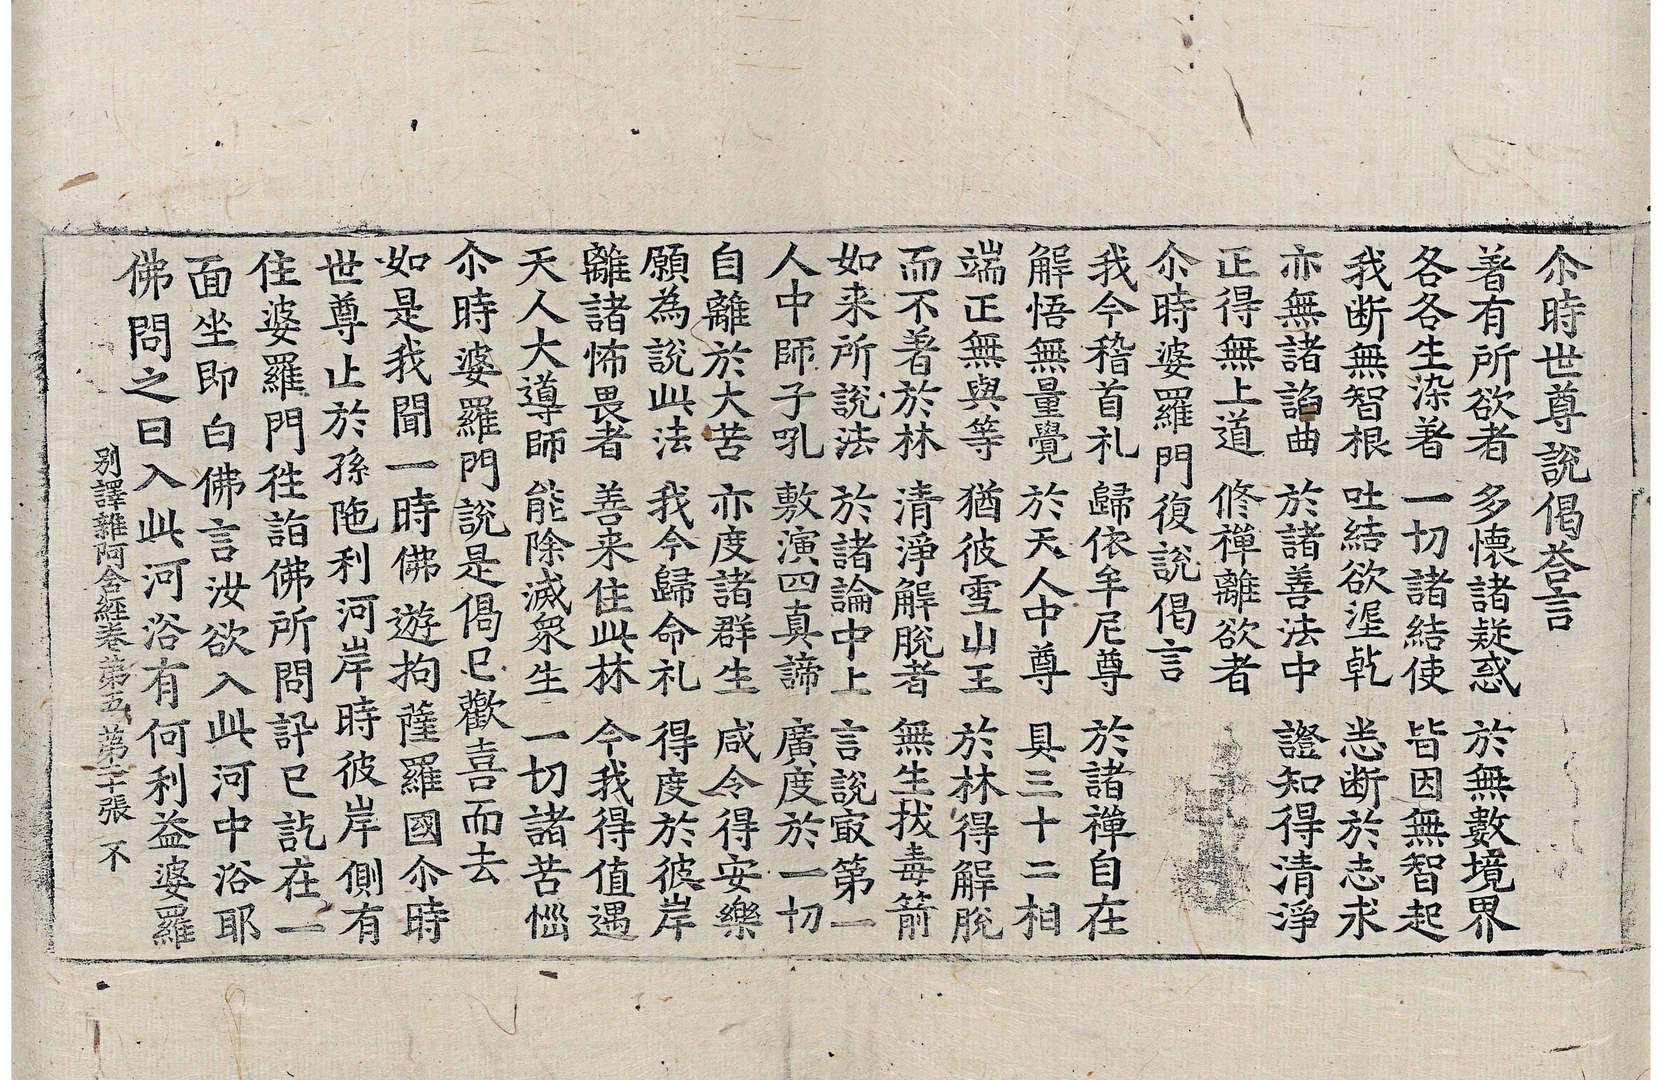 尒時世尊說偈荅言
著有所欲者　多懷諸疑惑　於無數境界
各各生染著　一切諸結使　皆因無智起
我断無智根　吐結欲埿乹　恙断於志求
亦無諸諂曲　於諸善法中　證知得清淨
正得無上道　修禪離欲者
尒時婆羅門復說偈言
我今稽首礼　歸依牟尼尊　於諸禪自在
解悟無量覺　於天人中尊　具三十二相
端正無與等　猶彼雪山王　於林得解脫
而不著於林　清淨解脫者　無生拔毒箭
如来所說法　於諸論中上　言說㝡第一
人中師子吼　敷演四真諦　廣度於一切
自離於大苦　亦度諸群生　咸令得安樂
願為說此法　我今歸命礼　得度於彼岸
離諸怖畏者　善来住此林　今我得值遇
天人大導師　能除滅衆生　一切諸苦惱
尒時婆羅門說是偈已歡喜而去
如是我聞一時佛遊拘薩羅國尒時
世尊止於孫陁利河岸時彼岸側有
住婆羅門徃詣佛所問訊已訖在一
面坐即白佛言汝欲入此河中浴耶
佛問之曰入此河浴有何利益婆羅
别譯雜阿含經卷第五　第二十張　不